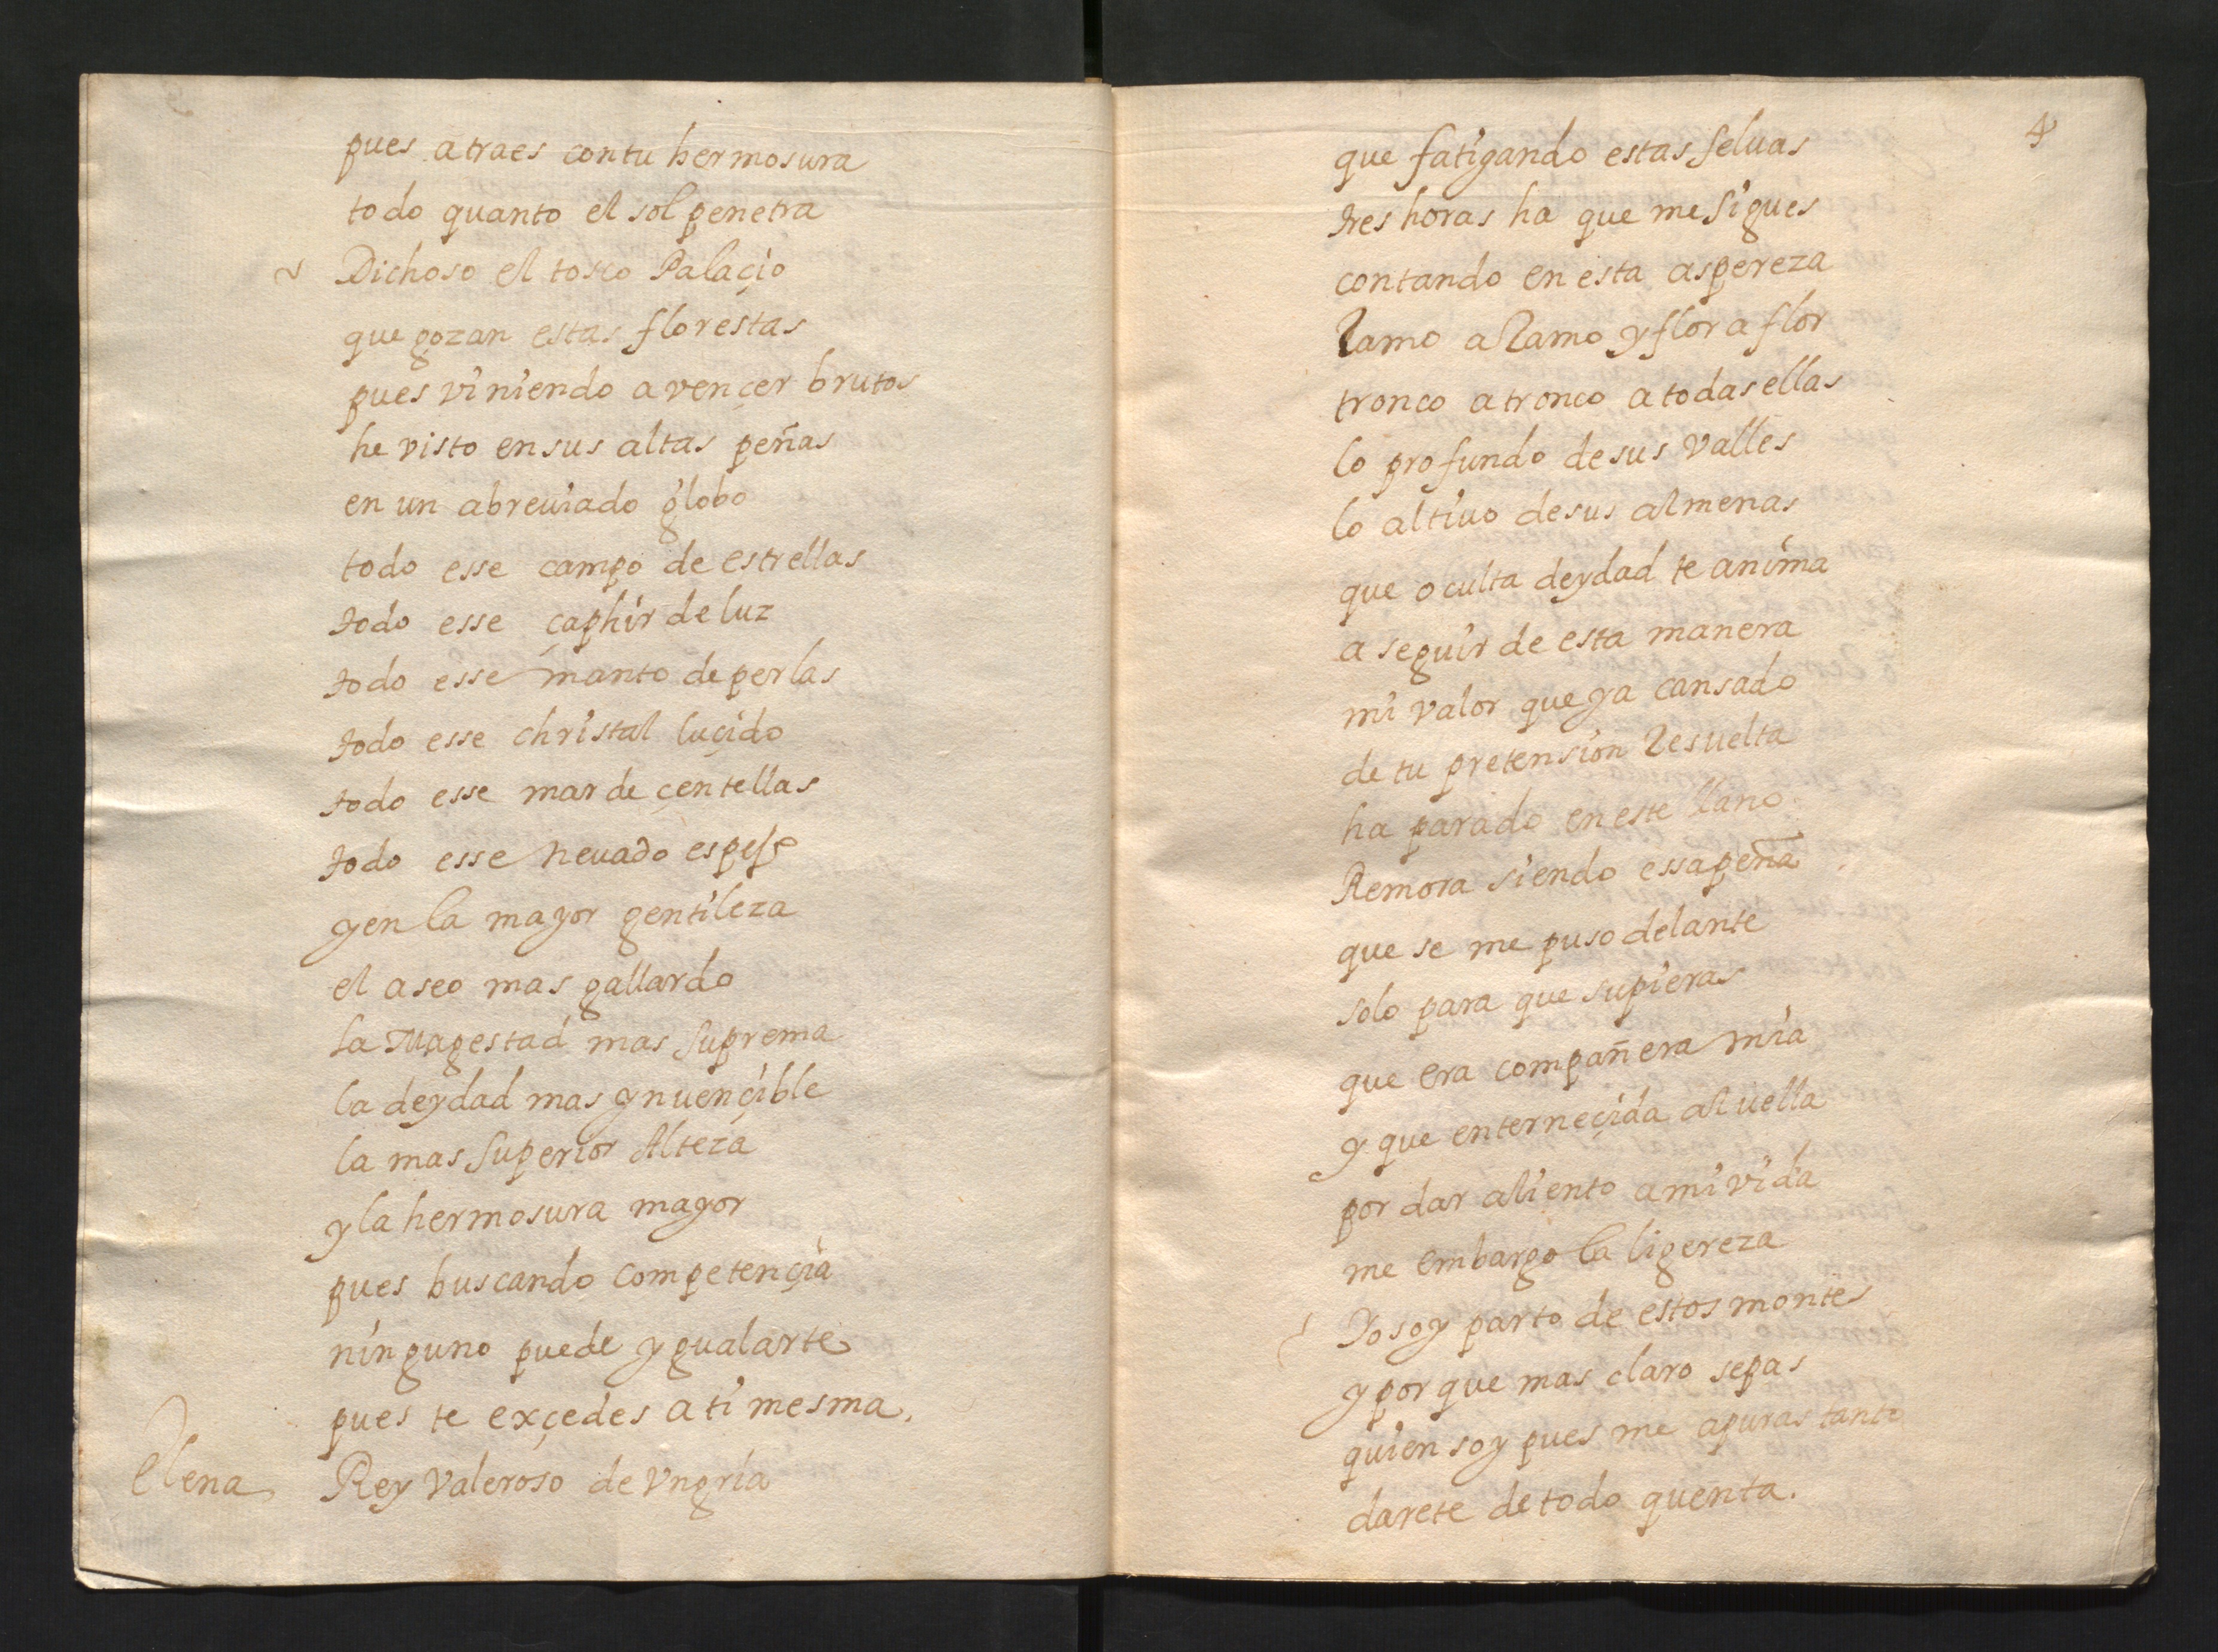 pues atraes con tu hermosura
todo quanto el sol penetra
Dichoso el tosco Palaçio
que gozan estas florestas
pues viniendo a vençer brutos
he visto en sus altas peñas
en un abreuiado globo
todo esse campo de estrellas
todo esse çaphir de luz
todo esse manto de perlas
todo esse christal luçido
todo esse mar de çentellas
todo esse neuado espejo
y en la mayor gentileza
el aseo mas gallardo
la Magestad mas suprema
la deydad mas ynuençible
la mas superior Alteza
y la hermosura mayor
pues buscando competençia
ninguno puede ygualarte
pues te exçedes a ti mesma.
Elena Rey valeroso de Vngria
4
que fatigando estas seluas
tres horas ha que me sigues
contando en esta aspereza
Ramo a Ramo y flor a flor
tronco a tronco a todas ellas
lo profundo de sus valles
lo altiuo de sus almenas
que oculta deydad te anima
a seguir de esta manera
mi valor que ya cansado
de tu pretension Resuelta
ha parado en este llano
Remora siendo essa peña
que se me puso delante
solo para que supieras
que era compañera mia
y que enterneçida al uella
por dar aliento a mi vida
me embargo la ligereza
Yo soy parto de estos montes
y porque mas claro sepas
quien soy pues me apuras tanto
darete de todo quenta.